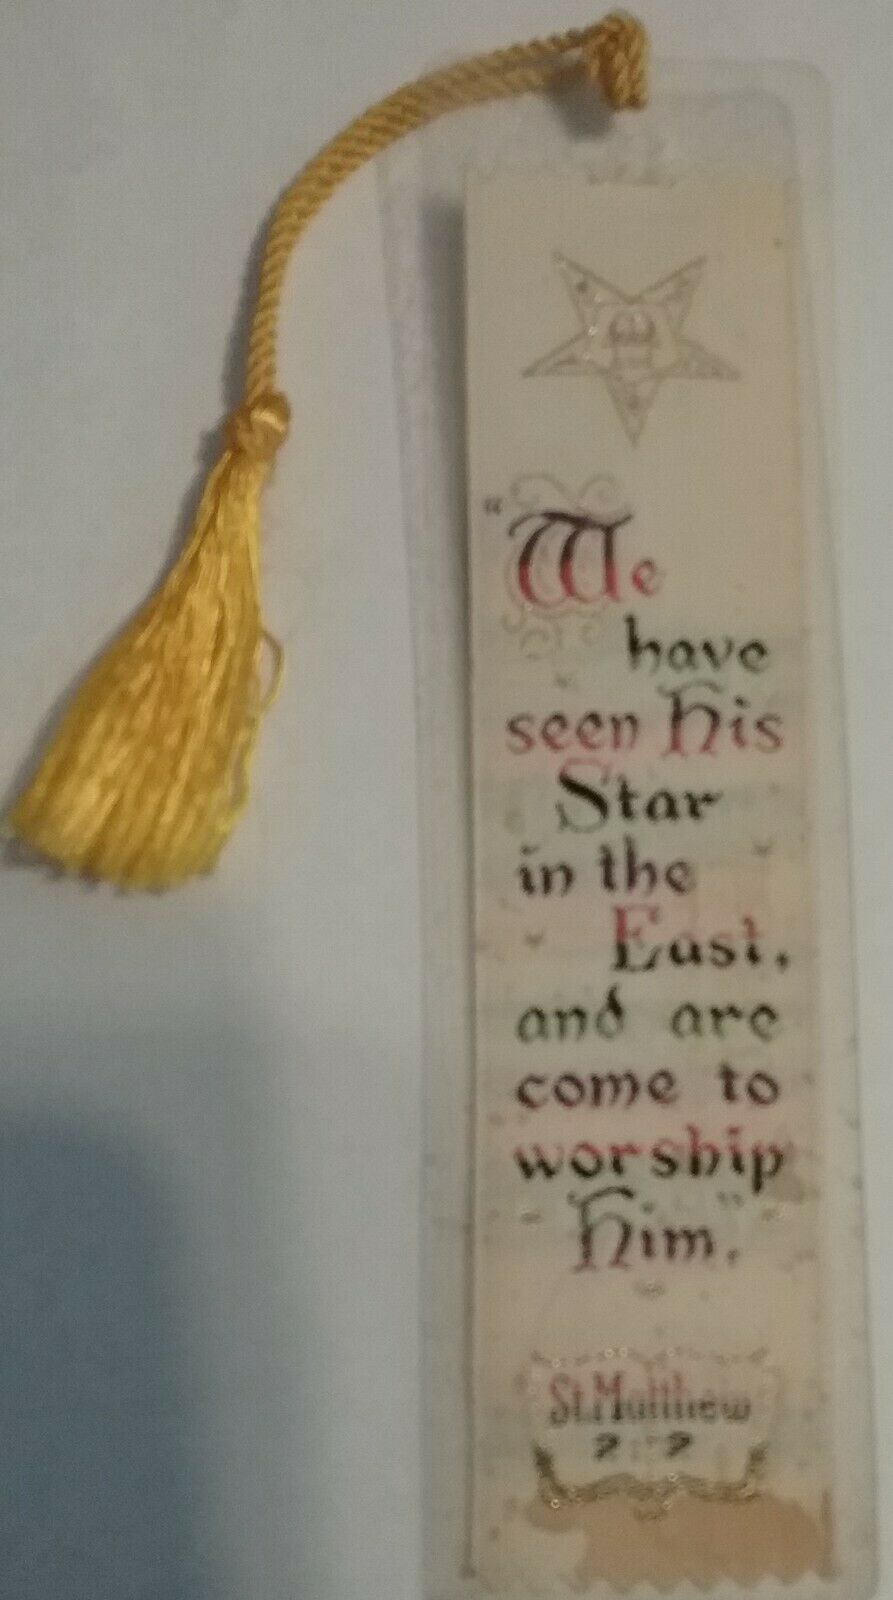 "We
have
seen His
Star
in the
East,
and are
come to
worship
Him."
St. Matthew
2:2